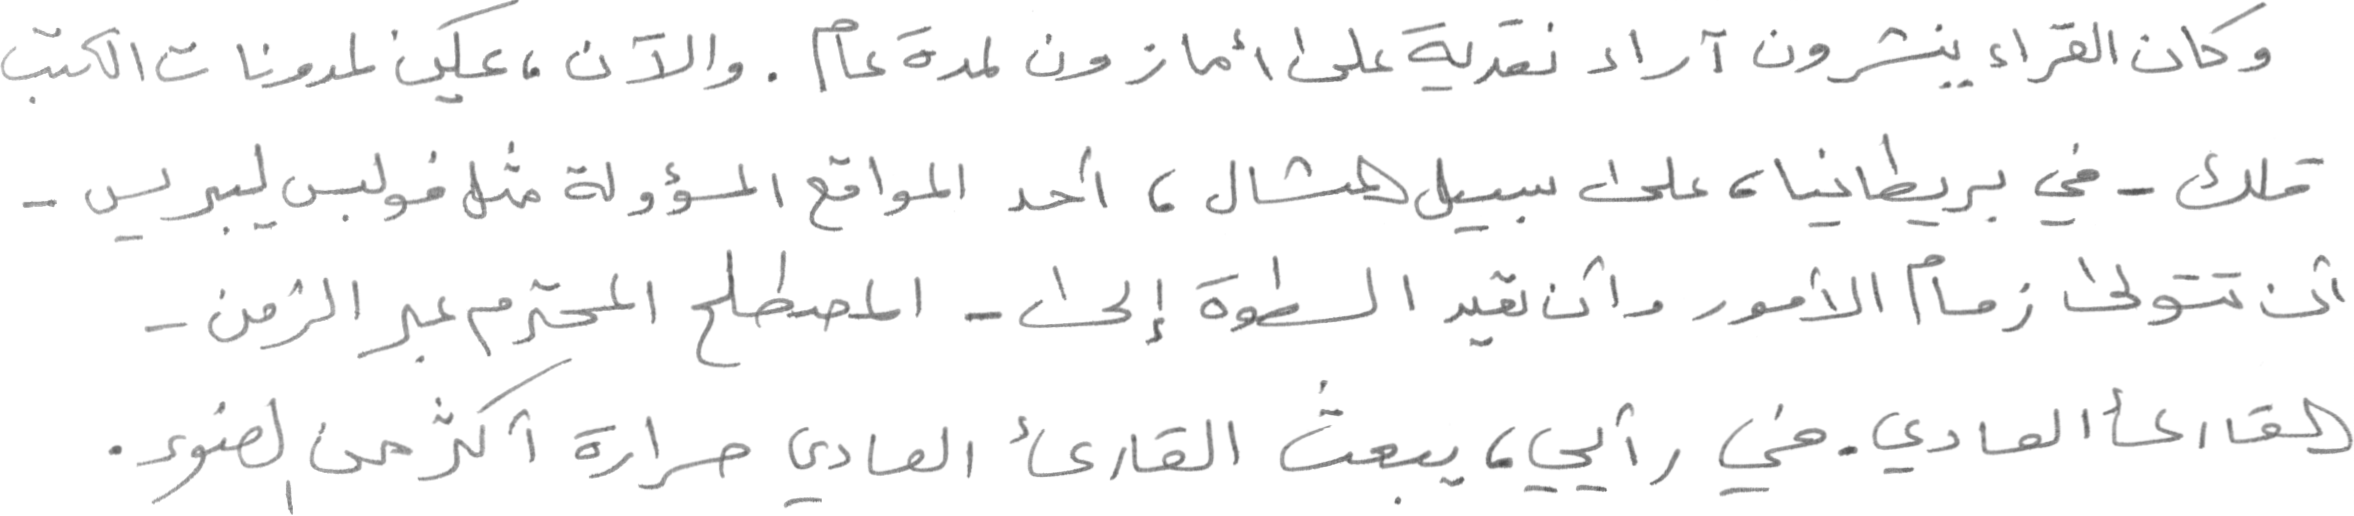 وكان القراء ينشرون آراء نقدية على أمازون لمدة عام. والآن، يمكن لمدونات الكتب
تملك - في بريطانيا، على سبيل المثال، أحد المواقع المسؤولة مثل فولبس ليبريس -
أن تتولى زمام الأمور وأن تعيد السطوة إلى - المصطلح المحترم عبر الزمن -
القارئ العادي. في رأيي، يبعث القارئ العادي حرارة أكثر من الضوء.